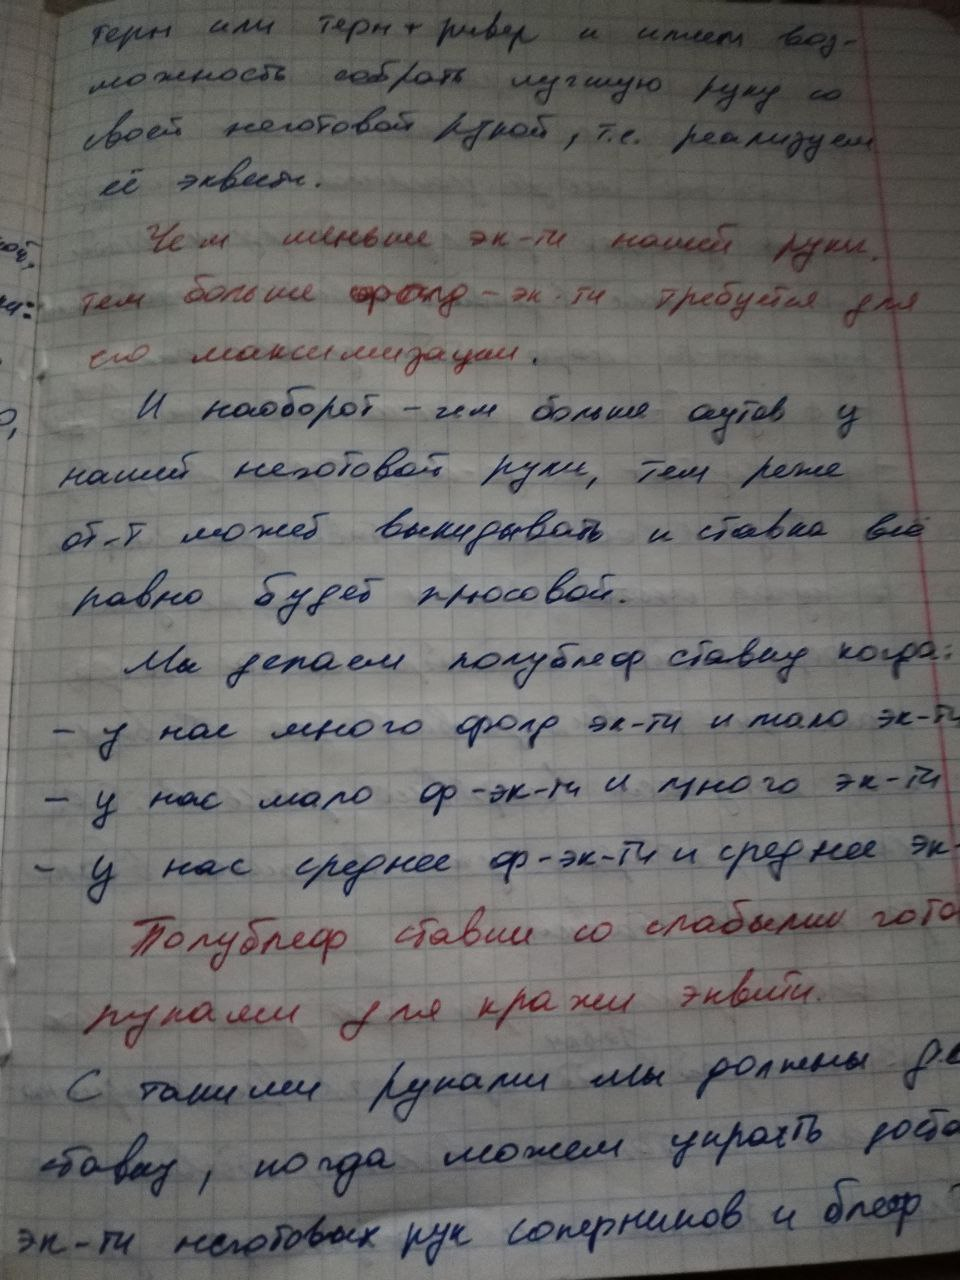 терн или терн + ривер и имеем воз-
можность собрать лучшую руку со
своей неготовой рукой, т.е. реализуем
её эквити.
Чем меньше эк-ти нашей руки,
тем больше фолд-эк-ти требуется для
его максимизации.
И наоборот - чем больше аутов у
нашей неготовой руки, тем реже
оп-т может выкидывать и ставка всё
равно будет плюсовой.
Мы делаем полублеф ставку когда:
- у нас много фолд эк-ти и мало эк-ти
- у нас мало ф-эк-ти и много эк-ти
- у нас среднее ф-эк-ти и среднее эк-
Полублеф ставки со слабыми гото
руками для кражи эквити.
С такими руками мы должны д
ставку, когда можем украсть доста
эк-ти неготовых рук соперников и блеф